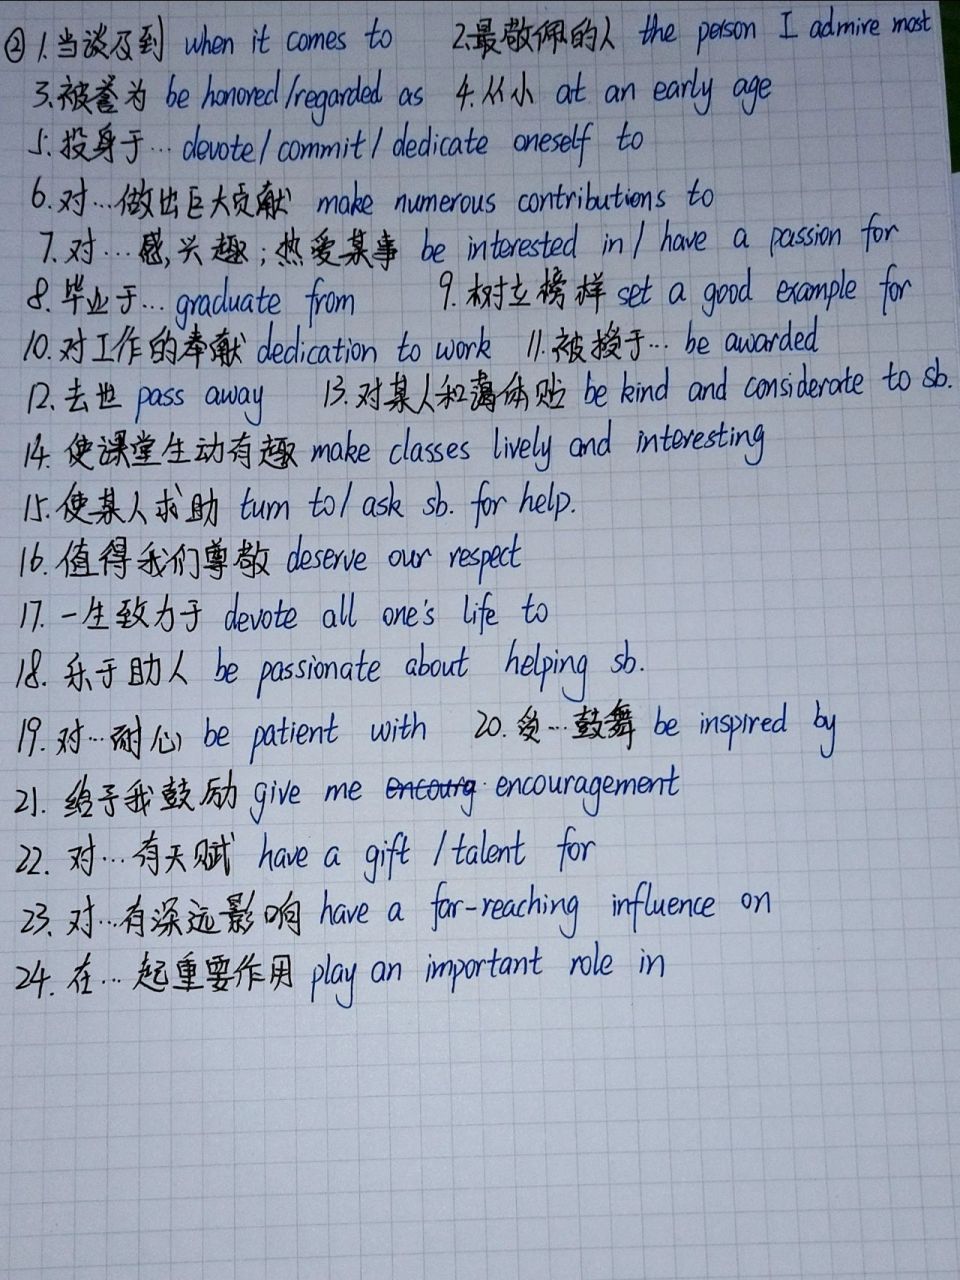 ② 1.当谈及到 when it comes to 2.最敬佩的人 the person I admire most
3.被誉为 be honored/regarded as 4.从小 at an early age
5.投身于… devote/commit/dedicate oneself to
6.对…做出巨大贡献 make numerous contributions to
7.对…感兴趣;热爱某事 be interested in/have a passion for
8.毕业于… graduate from 9.树立榜样 set a good example for
10.对工作的奉献 dedication to work 11.被授于… be awarded
12.去世 pass away 13.对某人和蔼体贴 be kind and considerate to sb.
14.使课堂生动有趣 make classes lively and interesting
15.使某人求助 turn to/ask sb. for help.
16.值得我们尊敬 deserve our respect
17.一生致力于 devote all one's life to
18.乐于助人 be passionate about helping sb.
19.对…耐心 be patient with 20.受…鼓舞 be inspired by
21.给予我鼓励 give me encourg encouragement
22.对…有天赋 have a gift/talent for
23.对…有深远影响 have a far-reaching influence on
24.在…起重要作用 play an important role in